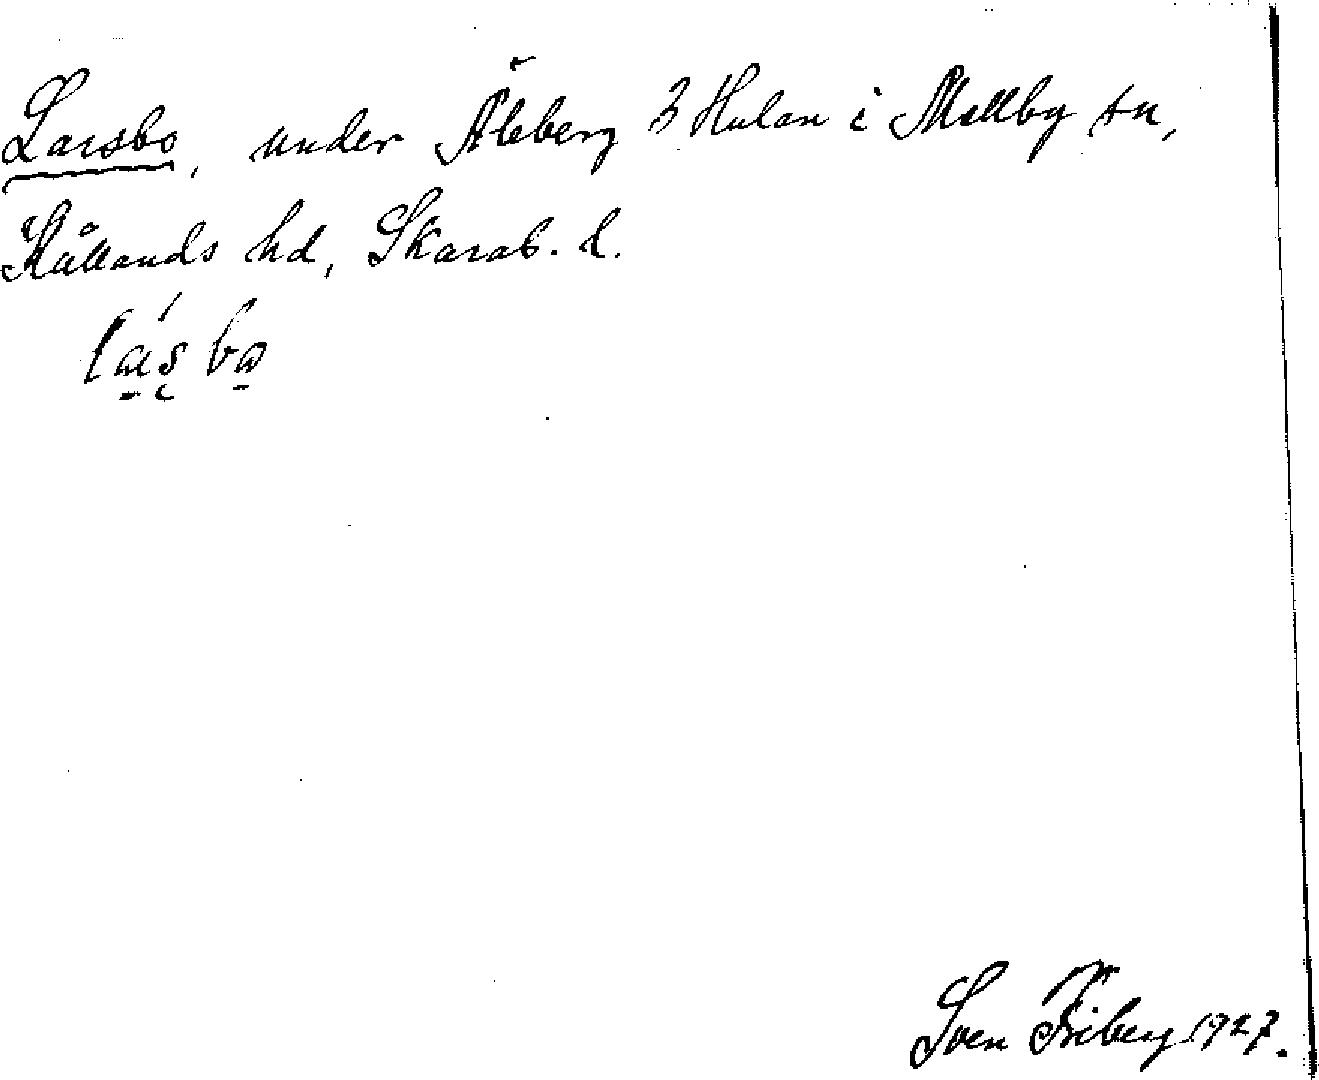 Larsbo, under Åleberg 3 Hulan i Mellby sn,
Kållands hd, Skarab. l.
Sven Friberg 1927.